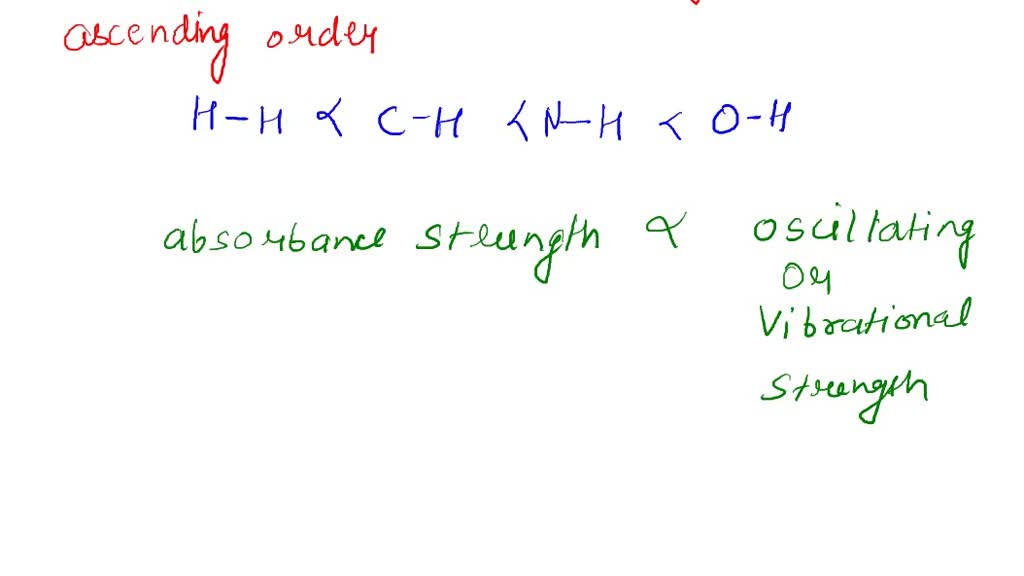 ascending order
H-H < C-H < N-H < O-H
absorbance strength ∝ oscillating
or
Vibrational
strength